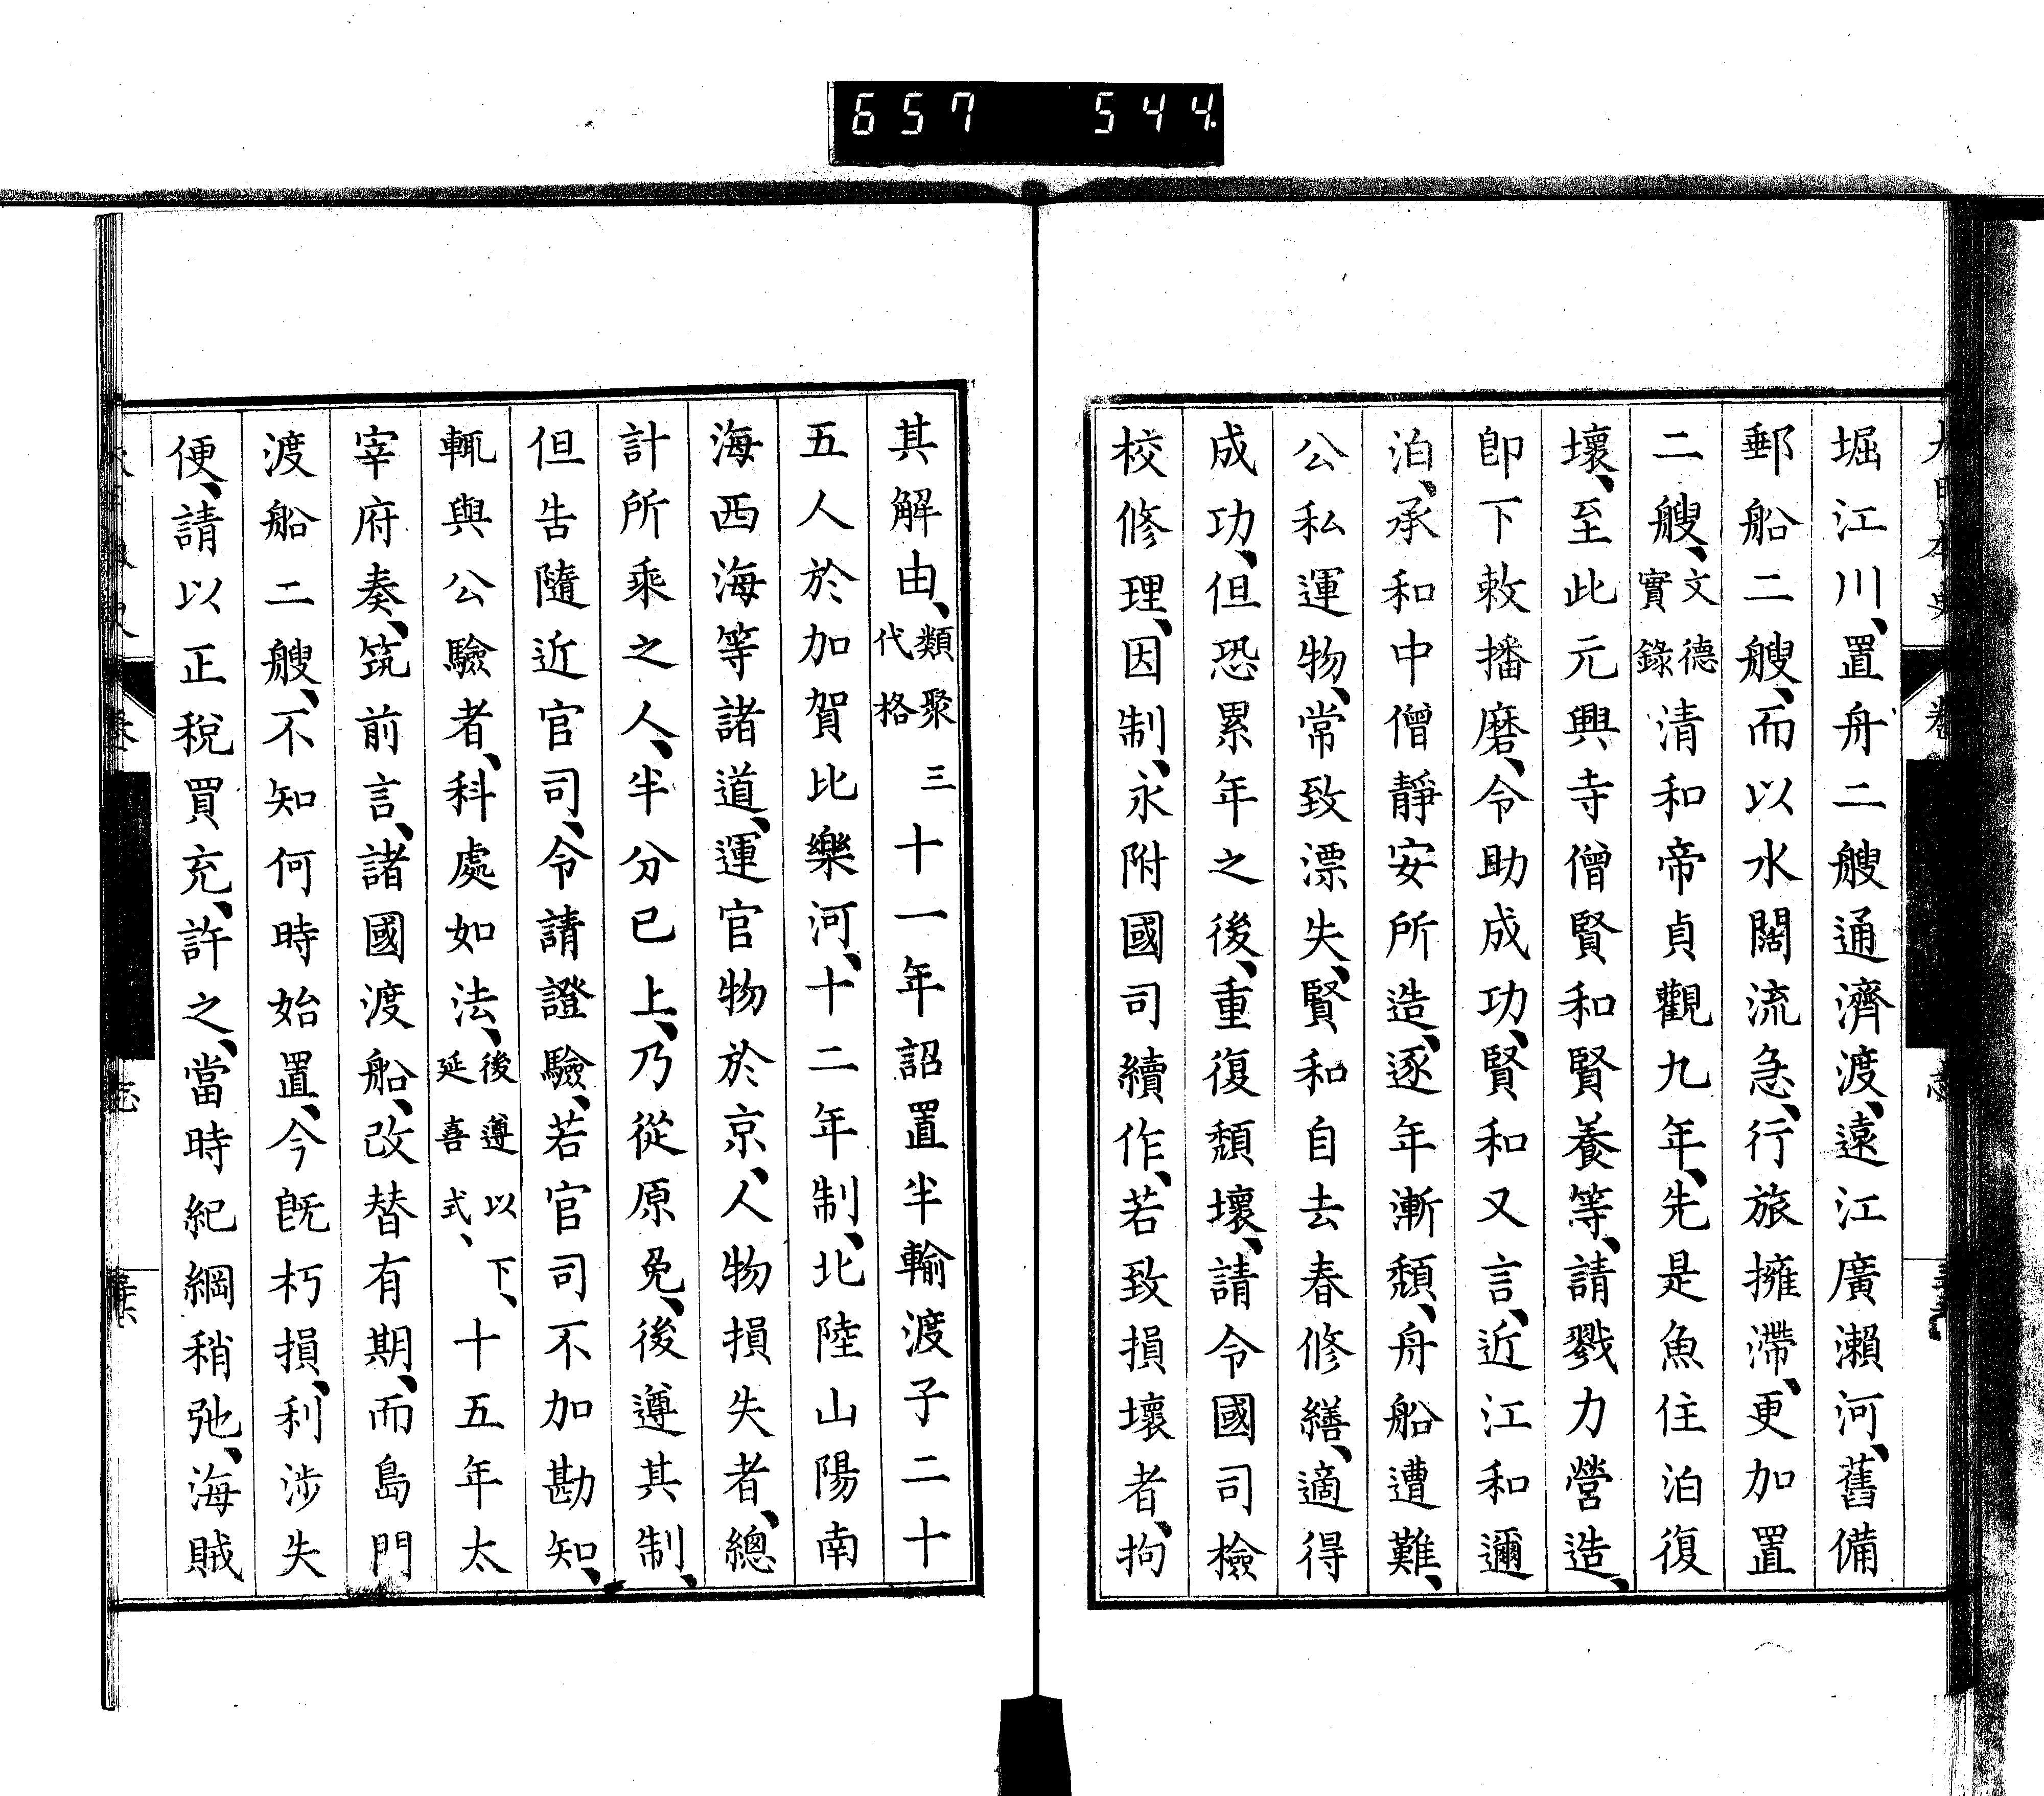 657 544
堀江川、置舟二艘通濟渡、遠江廣瀨河、舊備
郵船二艘、而以水闊流急、行旅擁滯、更加置
二艘、文德實錄清和帝貞觀九年、先是魚住泊復
壞、至此元興寺僧賢和賢養等、請戮力營造、
卽下敕播磨、令助成功、賢和又言、近江和邇
泊、承和中僧靜安所造、逐年漸頽、舟船遭難、
公私運物、常致漂失、賢和自去春修繕、適得
成功、但恐累年之後、重復頽壞、請令國司檢
校修理、因制、永附國司續作、若致損壞者、拘
其解由、類聚代格三十一年詔置半輸渡子二十
五人於加賀比樂河、十二年制、北陸山陽南
海西海等諸道、運官物於京、人物損失者、總
計所乘之人、半分已上、乃從原免、後遵其制、
但告隨近官司、令請證驗、若官司不加勘知、
輒與公驗者、科處如法、後遵以下、延喜式、十五年太
宰府奏、筑前言、諸國渡船、改替有期、而島門
渡船二艘、不知何時始置、今旣朽損、利涉失
便、請以正稅買充、許之、當時紀綱稍弛、海賊